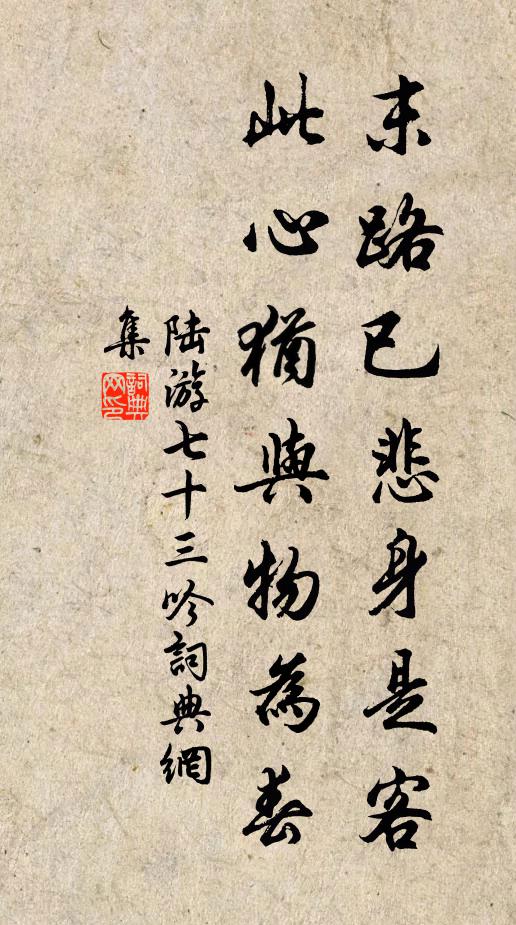 末路已悲身是客
此心猶與物為春
陸游七十三吟詞典網
集
詞典網印